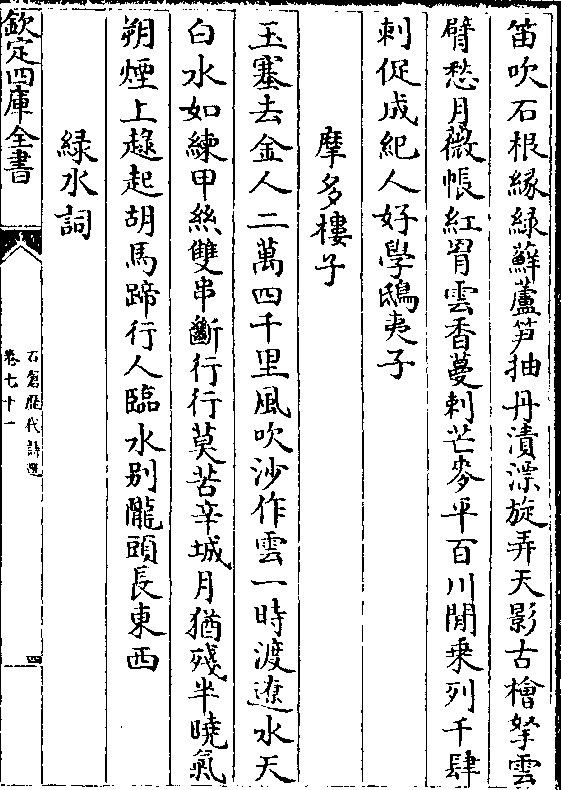 笛吹石根緣綠蘚蘆笋抽丹漬漂旋弄天影古檜拏雲
臂愁月薇帳紅罥雲香蔓刺芒麥平百川閒乗列千肆
刺促成紀人好學鴟夷子
摩多樓子
玉塞去金人二萬四千里風吹沙作雲一時渡遼水天
白水如練甲絲雙串斷行行莫苦辛城月猶殘半曉氣
朔煙上趢起胡馬蹄行人臨水别隴頭長東西
綠水詞
欽定四庫全書
石倉歴代詩選
卷七十一
四